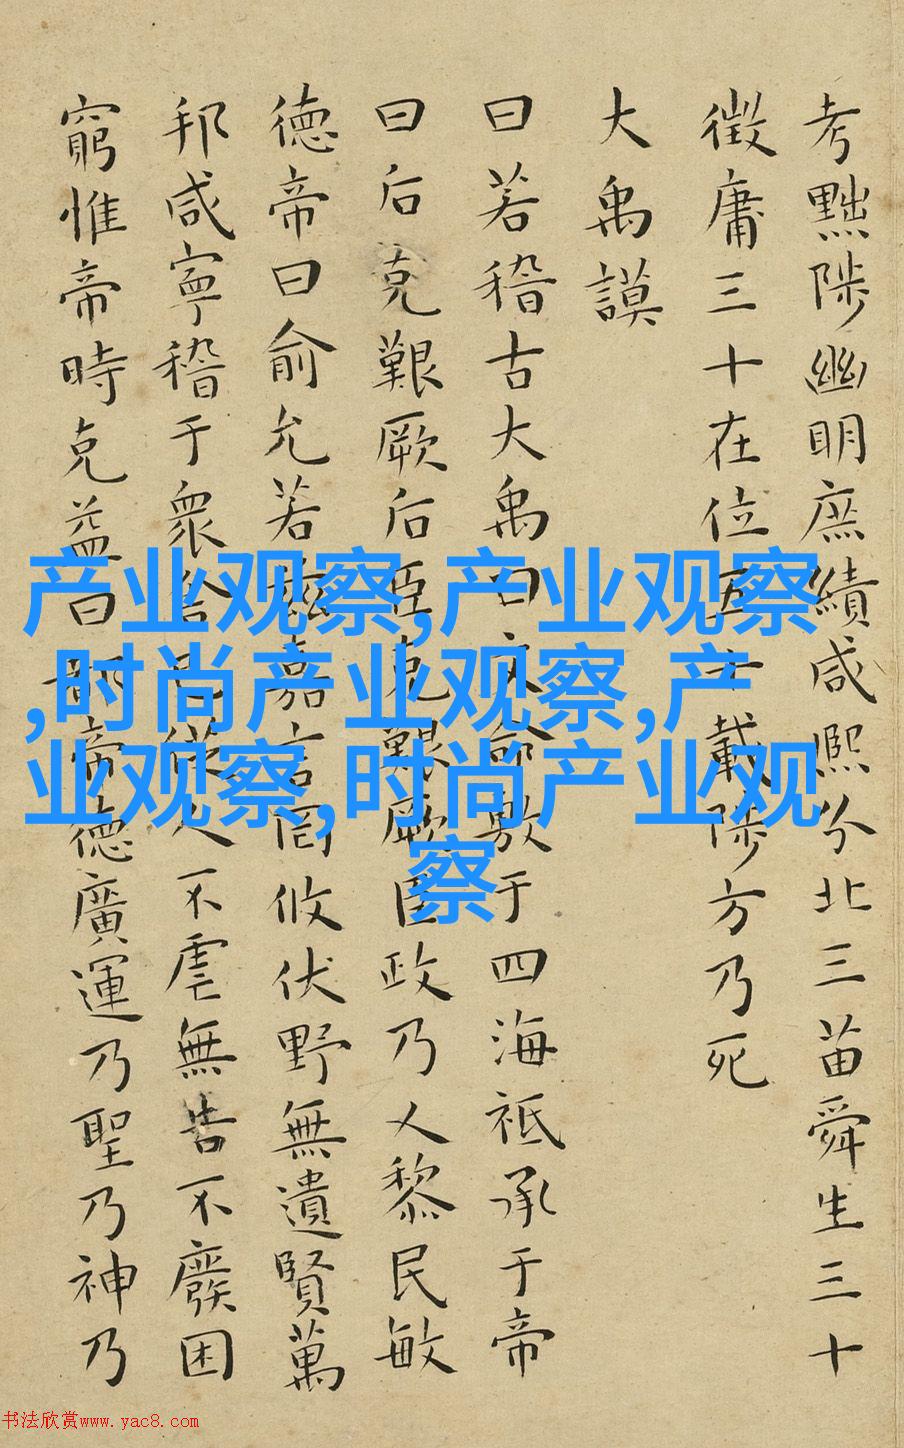 考黜陟幽明庶績咸熙分北三苗舜生三十
徵庸三十在位五十載陟方乃死
大禹謨
曰若稽古大禹曰文命敷于四海祗承于帝
曰后克艱厥后臣克艱厥臣政乃乂黎民敏
德帝曰俞允若茲嘉言罔攸伏野無遺賢萬
邦咸寧稽于衆舍己從人不虐無告不廢困
窮惟帝時克益曰都帝德廣運乃聖乃神乃
产业观察,产业观察
,时尚产业观察,产
业观察,时尚产业观
察
书法欣赏www.yac8.com